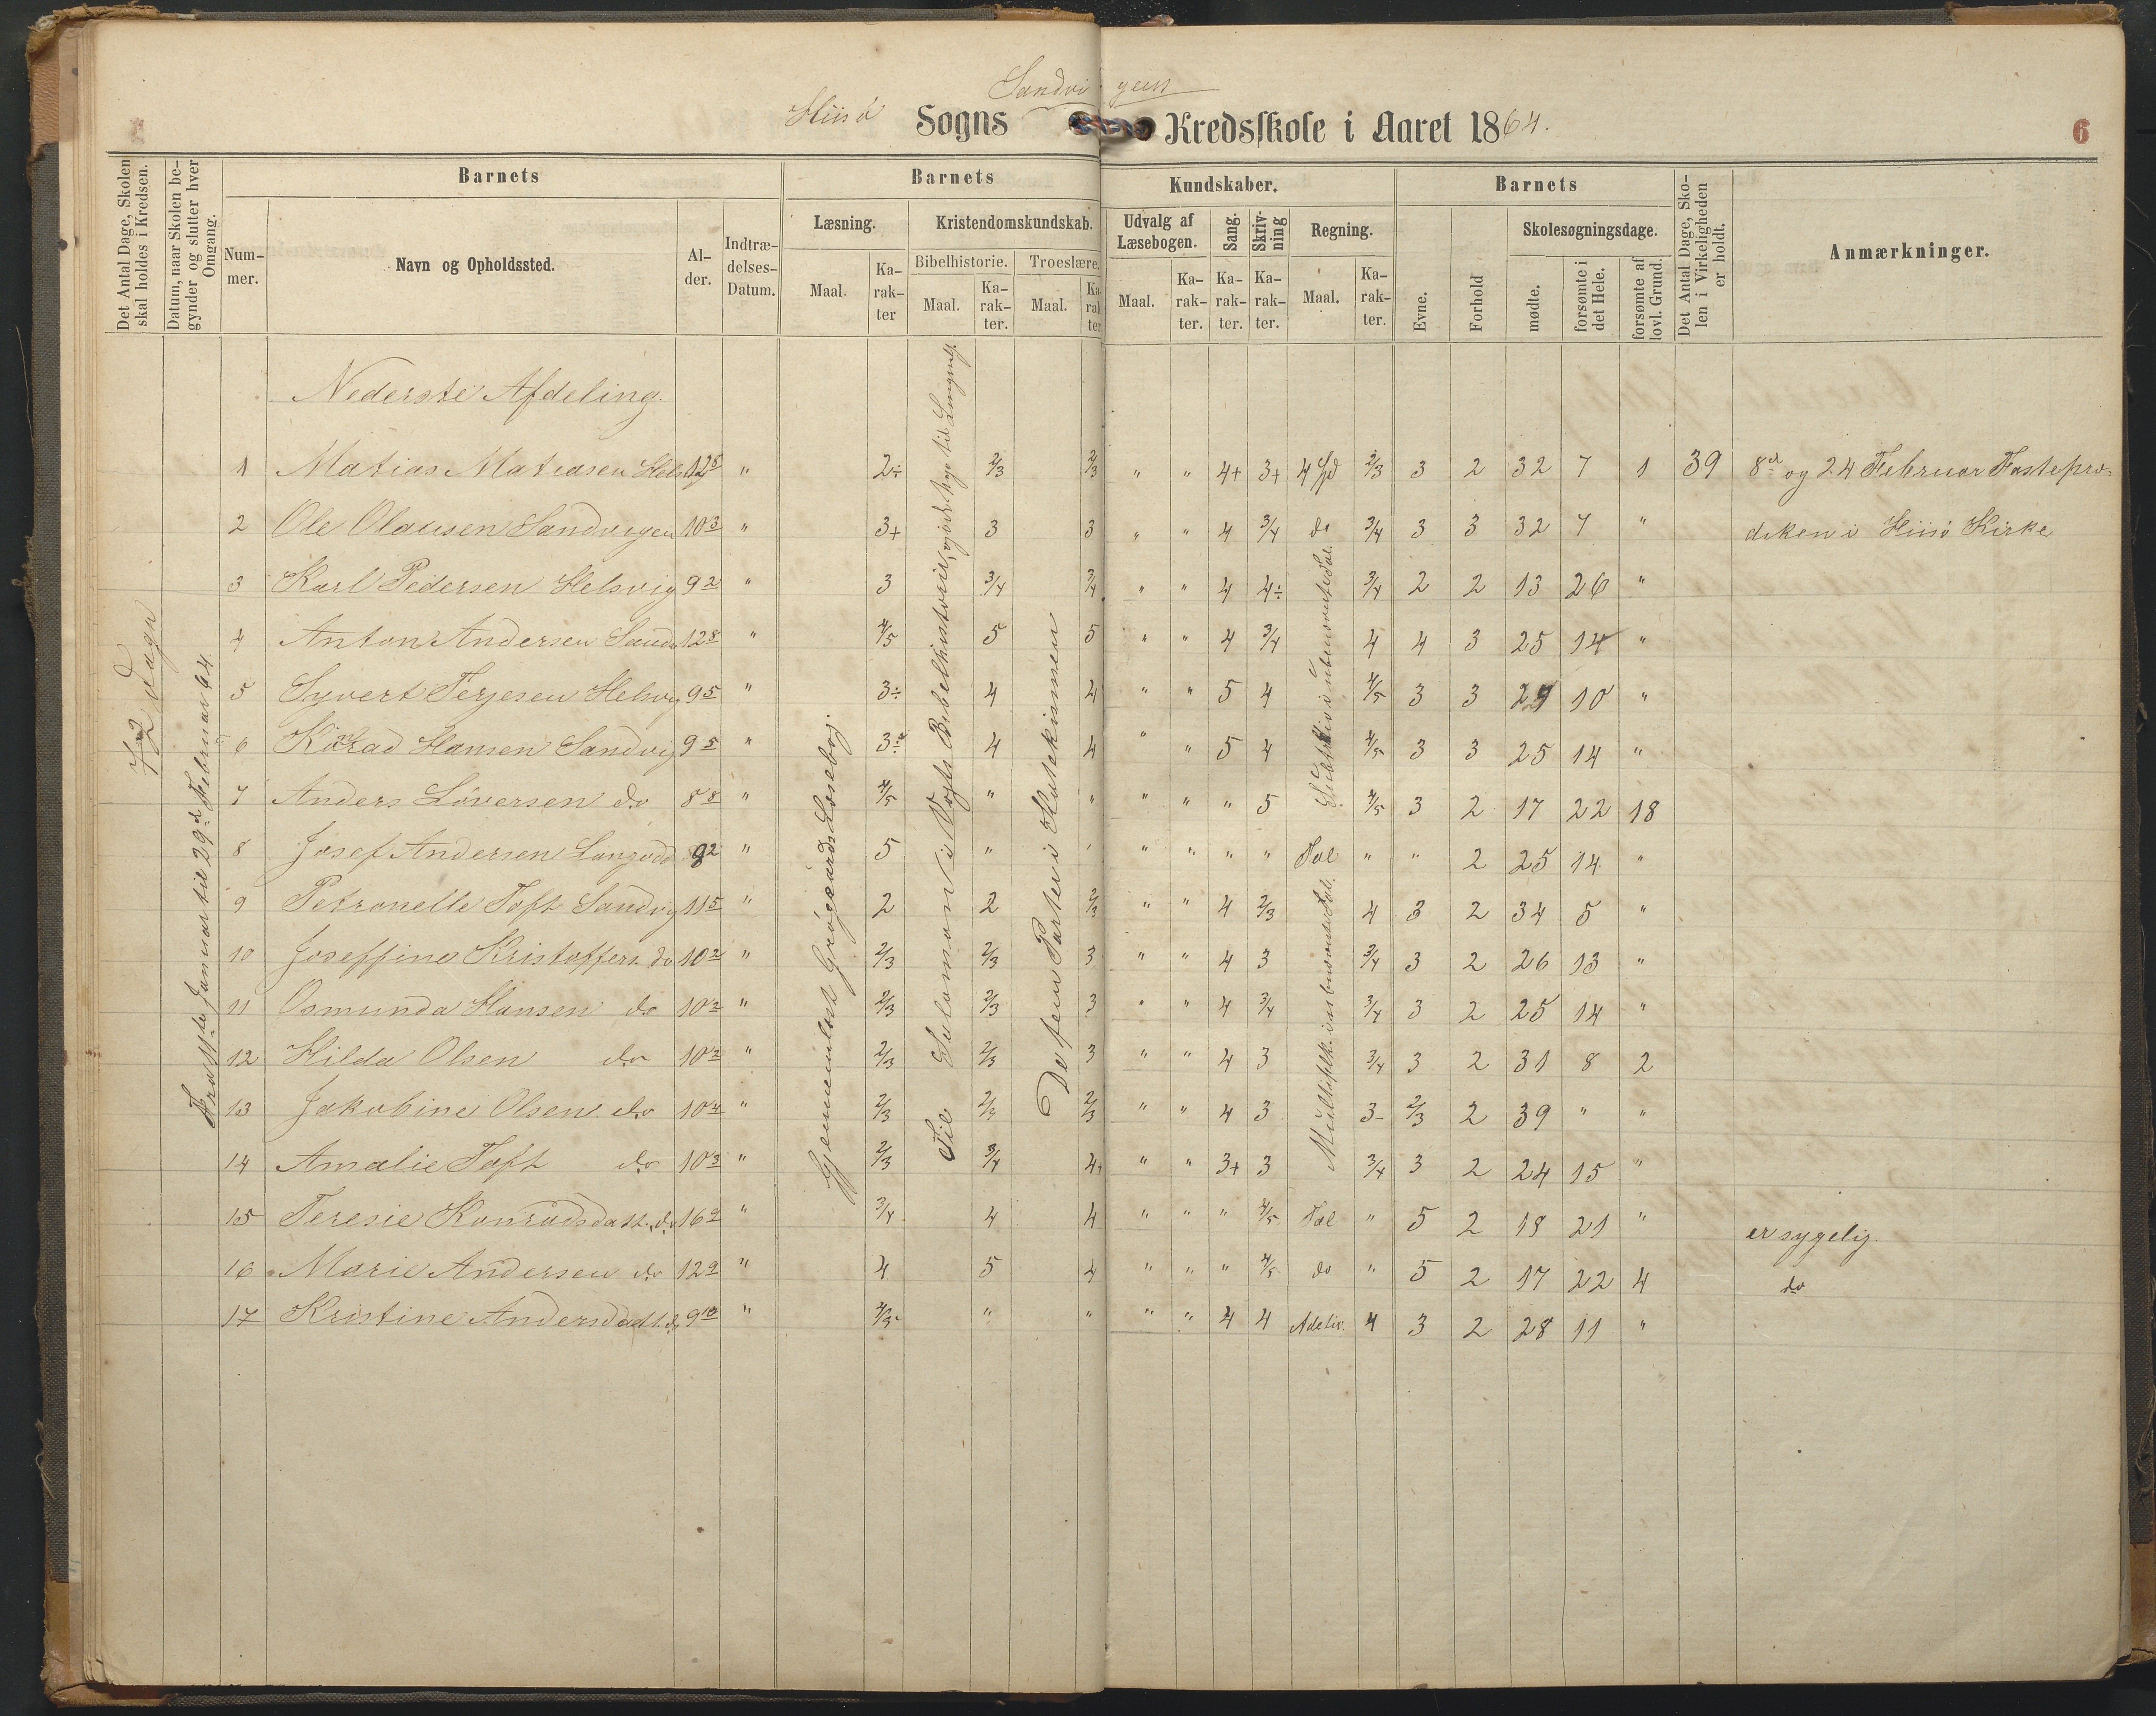 Sandvigen
Hisö Sogns Kredsskole i Aaret 1864.
6
Det Antal Dage, Skolen skal holdes i Kredsen.
Datum, naar Skolen begynder og slutter hver Omgang.
Barnets
Barnets
Kundskaber.
Barnets
Det Antal Dage, Skolen i Virkeligheden er holdt.
Anmærkninger.
Nummer.
Navn og Opholdssted.
Alder.
Indtrædelses-Datum.
Læsning.
Kristendomskundskab.
Udvalg af Læsebogen.
Sang.
Skrivning
Regning.
Evne.
Forhold
Skolesøgningsdage.
Maal.
Karakter
Bibelhistorie.
Troeslære.
Maal.
Karakter.
Maal.
Karakter
Maal.
Karakter.
Karakter.
Karakter.
Maal.
Karakter.
mødte.
forsømte i det Hele.
forsømte af lovl. Grund.
72 Dage
Fra 11te Januar til 29d Februar 64.
Gjennemlæst Grøgaards Læsebog.
Til Salamon i Vogts Bibelhistorie,
De fem Parter i Katekismen
Subtraktion i ubenævnte Tal.
Multiplik. i ubenævnte Tal.
Nederste Afdeling.
1 Matias Matiasen Helsvig 12 5 " 2÷ 2/3 2/3 " " 4+ 3+ 4 Sp 2/3 3 2 32 7 1 39 8d og 24 Februar Fastepræ-
2 Ole Olausen Sandvigen 10 3 " 3+ 3 3 " " 4 3/4 do 3/4 3 3 32 7 " diken i Hisö Kirke
3 Karl Pedersen Helsvig 9 2 " 3 3/4 3/4 " " 4 4÷ 3/4 2 2 13 26 "
4 Anton Andersen Sandv 12 8 " 4/5 5 5 " " 4 3/4 4 4 3 25 14 "
5 Syvert Terjesen Helsvig 9 5 " 3÷ 4 4 " " 5 4 4/5 3 3 29 10 "
6 Konrad Hansen Sandvig 9 5 " 3÷ 4 4 " " 5 4 4/5 3 3 25 14 "
7 Anders Löversen do 8 8 " 4/5 " " " " " 5 4/5 3 2 17 22 18
8 Josef Andersen 9 2 " 5 " " " " " " Tal " " 2 25 14 "
9 Petronelle Toft Sandvig 11 5 " 2 2 2/3 " " 4 2/3 4 3 2 34 5 "
10 Joseffine Kristoffers. do 10 2 " 2/3 2/3 3 " " 4 3 3/4 3 2 26 13 "
11 Osmunda Hansen do 10 2 " 2/3 2/3 3 " " 4 3/4 3/4 3 2 25 14 "
12 Hilda Olsen do 10 2 " 2/3 2/3 3 " " 4 3 3/4 3 2 31 8 2
13 Jakobine Olsen do 10 4 " 2/3 2/3 2/3 " " 4 3 3- 2/3 2 39 " "
14 Amalie Toft do 10 3 " 2/3 3/4 4+ " " 3+ 3 3/4 3 2 24 15 "
15 Teresie Konradsdatt. do 16 9 " 3/4 4 4 " " " 4/5 Tal " 5 2 18 21 " er sygelig
16 Marie Andersen do 12 9 " 4 5 4 " " " 4/5 do " 5 2 17 22 4 do
17 Kristine Andersdadt. do 9 10 " 4/5 " " " " 4 4 Adetiv. 4 3 2 28 11 "